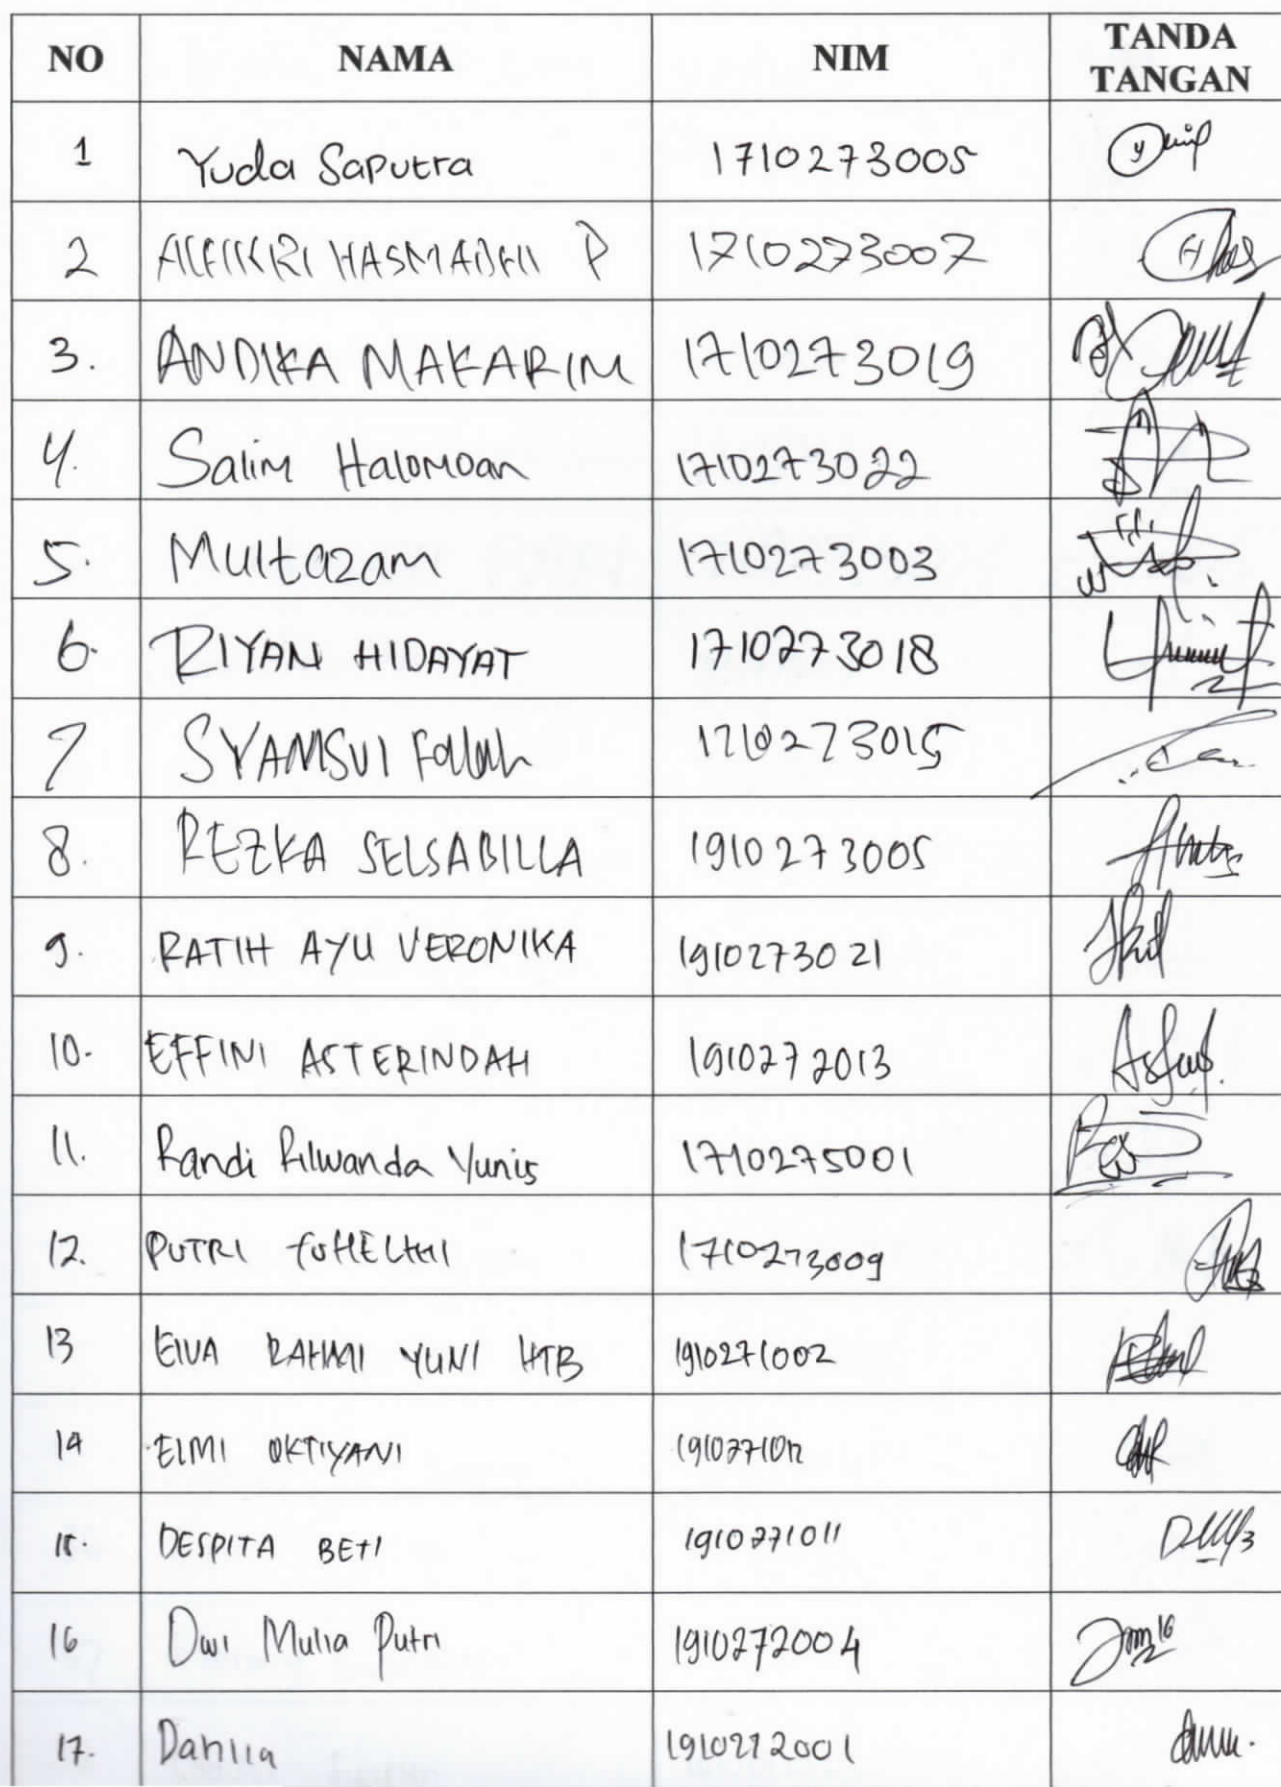 NO NAMA NIM TANDA TANGAN
1 Yuda Saputra 1710273005
2 ALFIKRI HASMADHI P 1710273007
3. ANDIKA MAKARIM 1710273019
4. Salim Halomoan 1710273022
5. Multazam 1710273003
6. RIYAN HIDAYAT 1710273018
7 SYAMSUl Fallah 1710273015
8. REZKA SELSABILLA 1910273005
9. RATIH AYU VERONIKA 1910273021
10. EFFINI ASTERINDAH 1910272013
11. Randi Rilwanda Yunis 1710275001
12. PUTRI 1710273009
13 ElVA RAHMI YUNI HTB 1910271002
14 ElMI OKTIYANI 1910271012
15. DESPITA BETI 1910271011
16 Dwi Mulia Putri 1910272004
17. Dahlia 1910272001